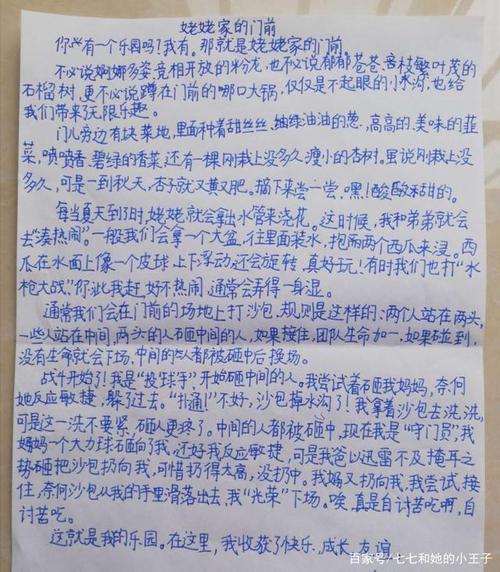 姥姥家的门前
你也有一个乐园吗?我有。那就是姥姥家的门前。
不必说婀娜多姿、竞相开放的粉龙,也不必说郁郁苍苍、枝繁叶茂的
石榴树,更不必说蹲在门前的哪口大锅,仅仅是不起眼的小水沟,也给
我们带来了无限乐趣。
门儿旁边有块菜地,里面种着甜丝丝、绿油油的葱,高高的、美味的韭
菜,喷喷香、碧绿的香菜,还有一棵刚栽上没多久、瘦小的杏树。里说刚栽上没
多久,可是一到秋天,杏子就又黄又肥。摘下来尝一尝,嘿!酸酸和甜的。
每当夏天到了时,姥姥就会拿出水管来浇花。这时候,我和弟弟就会
去“凑热闹”。一般我们会拿一个大盆,往里面装水,抱两个西瓜来浸。西
瓜在水面上像一个皮球,上下浮动,还会旋转,真好玩!有时我们也打“水
枪大战”。你泚我赶,好不热闹,通常会弄得一身湿。
通常我们会在门前的场地上打沙包,规则是这样的:两个人站在两头,
一些人站在中间,两头的人砸中间的人,如果接住,团队生命加一,如果碰到,
没有生命就会下场,中间的人都被砸中后换场。
战斗开始了!我是“投球手”开始砸中间的人。我尝试着砸我妈妈,奈何
她反应敏捷,躲了过去。“扑通!”不好,沙包掉水沟了!我拿着沙包去洗洗,
可是这一洗不要紧,砸人更疼了。中间的人都被砸中,现在我是“守门员”,我
妈妈一个大力球砸向了我,还好我反应敏捷,可是我爸以迅雷不及掩耳之
势砸把沙包扔向我,可惜扔得太高,没扔中。我妈又扔向我,我尝试接
住,奈何沙包从我的手里滑落出去,我“光荣”下场。唉,真是自讨苦吃啊,自
讨苦吃。
这就是我的乐园。在这里,我收获了快乐、成长、友谊
百家号/七七和她的小王子